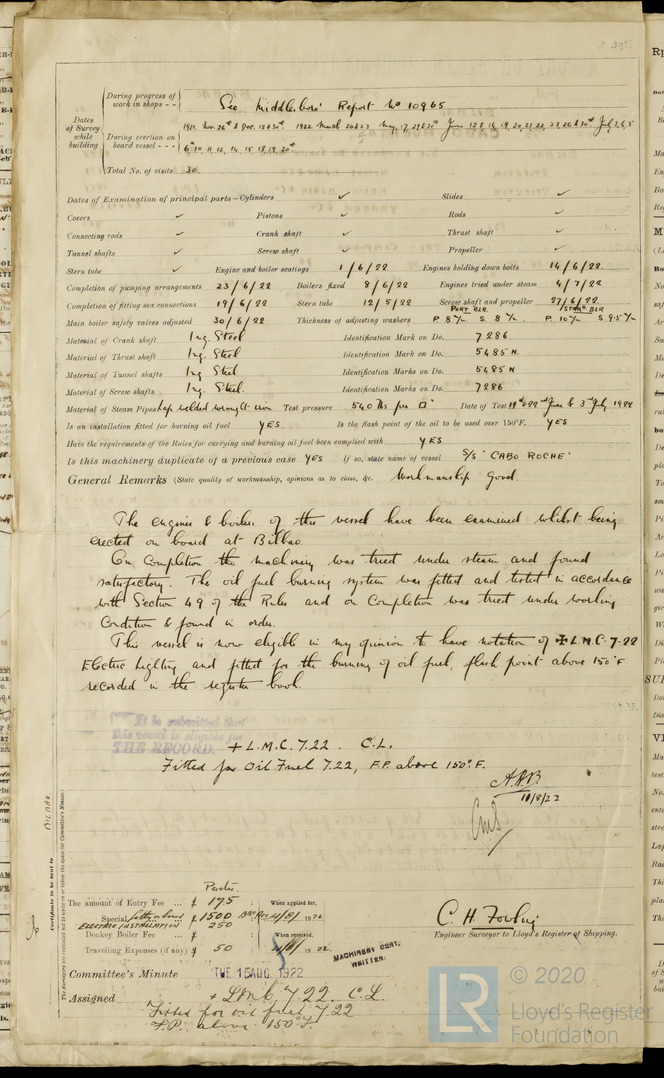 During progress of work in shops - - See Middlesbro' Report No 10965
Dates of Survey while building
During erection on board vessel - - - 1921. Nov. 26th & Dec. 12 & 30th 1922 March 20 & 23 May, 17, 29 & 30th June 12, 8, 16, 19, 20, 21, 22, 27, 26 & 30th July 3, 4, 5
6th 10, 11, 12, 14, 15 18, 19, 20th
Total No. of visits 30.
Dates of Examination of principal parts—Cylinders ✓ Slides ✓
Covers ✓ Pistons ✓ Rods ✓
Connecting rods ✓ Crank shaft ✓ Thrust shaft ✓
Tunnel shafts ✓ Screw shaft ✓ Propeller ✓
Stern tube ✓ Engine and boiler seatings 1/6/22 Engines holding down bolts 14/6/22
Completion of pumping arrangements 23/6/22 Boilers fixed 8/6/22 Engines tried under steam 4/7/22
Completion of fitting sea connections 19/6/22 Stern tube 12/5/22 Screw shaft and propeller 27/6/22
PORT BLR STARD BLR
Main boiler safety valves adjusted 30/6/22 Thickness of adjusting washers P. 8 m/m S. 8 m/m P. 10 m/m S. 9.5 m/m
Material of Crank shaft Ing. Steel Identification Mark on Do. 7286
Material of Thrust shaft Ing. Steel Identification Mark on Do. 5485 N.
Material of Tunnel shafts Ing. Steel Identification Marks on Do. 5485 N
Material of Screw shafts Ing. Steel. Identification Marks on Do. 7286
Material of Steam Pipes Lap welded wrought iron Test pressure 540 lbs per □" Date of Test 19th & 22nd June & 3rd July 1922
Is an installation fitted for burning oil fuel YES. Is the flash point of the oil to be used over 150°F. YES
Have the requirements of the Rules for carrying and burning oil fuel been complied with YES
Is this machinery duplicate of a previous case YES If so, state name of vessel S/S "CABO ROCHE"
General Remarks (State quality of workmanship, opinions as to class, &c. Workmanship Good.
The engines & boilers of this vessel have been examined whilst being
erected on board at Bilbao.
On Completion the machinery was tried under steam and found
satisfactory. The oil fuel burning system was fitted and tested in accordance
with Section 49 of the Rules and on Completion was tried under working
Condition & found in order.
This vessel is now eligible in my opinion to have notation of ✠ L.M.C. 7.22
Electric lighting and fitted for the burning of oil fuel, flash point above 150°F
recorded in the register book.
It is submitted that
this vessel is eligible for
THE RECORD.
+ L.M.C. 7.22. C.L.
Fitted for Oil Fuel 7.22, F.P. above 150°F.
10/8/22
BILBAO.
Certificate to be sent to
The Surveyors are requested not to write on or below the space for Committee's Minute.
The amount of Entry Fee ... 175 : When applied for,
Special 1500 4/8/1922
ELECTRIC INSTALLATION 250
Donkey Boiler Fee ... : When received,
Travelling Expenses (if any) 50 : 1922
C. H. Fowling
Engineer Surveyor to Lloyd's Register of Shipping.
MACHINERY CERT.
WRITTEN.
Committee's Minute TUE. 15 AUG. 1922
Assigned + LMC 7.22 C.L.
Fitted for oil fuel 7.22
F.P. above 150°F.
LR © 2020
Lloyd's Register
Foundation